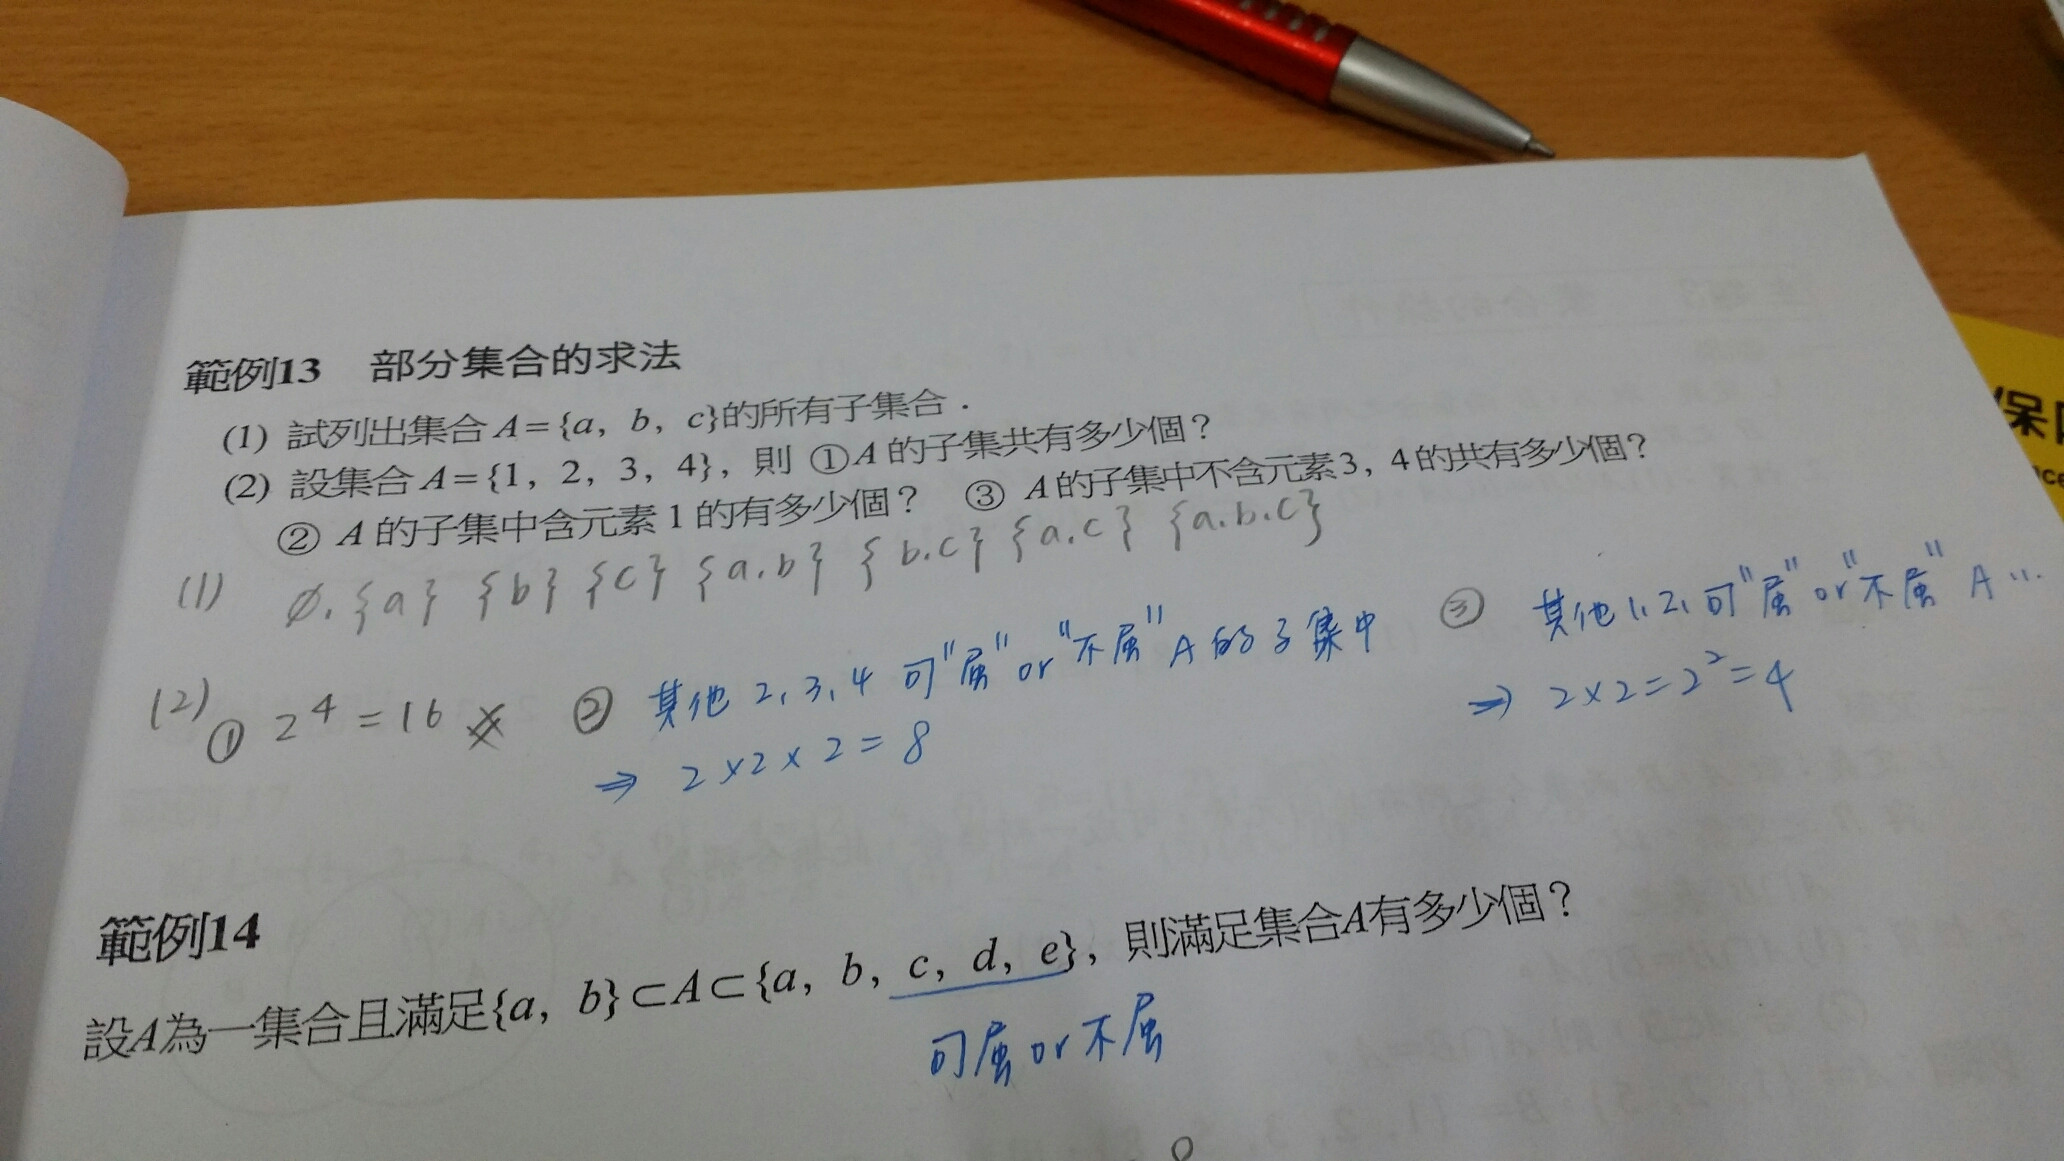 範例13 部分集合的求法
(1) 試列出集合A={a, b, c}的所有子集合.
(2) 設集合A={1, 2, 3, 4}, 則 ①A的子集共有多少個?
② A的子集中含元素1的有多少個? ③ A的子集中不含元素3, 4的共有多少個?
(1) ∅. {a} {b} {c} {a.b} {b.c} {a.c} {a.b.c}
(2) ① 2⁴=16 ② 其他 2, 3, 4 可"屬"or"不屬" A的子集中
⇒ 2×2×2=8
③ 其他1, 2, 可"屬"or"不屬" A "…
⇒ 2×2=2²=4
範例14
設A為一集合且滿足{a, b}⊂A⊂{a, b, c, d, e}, 則滿足集合A有多少個?
可屬or不屬
保